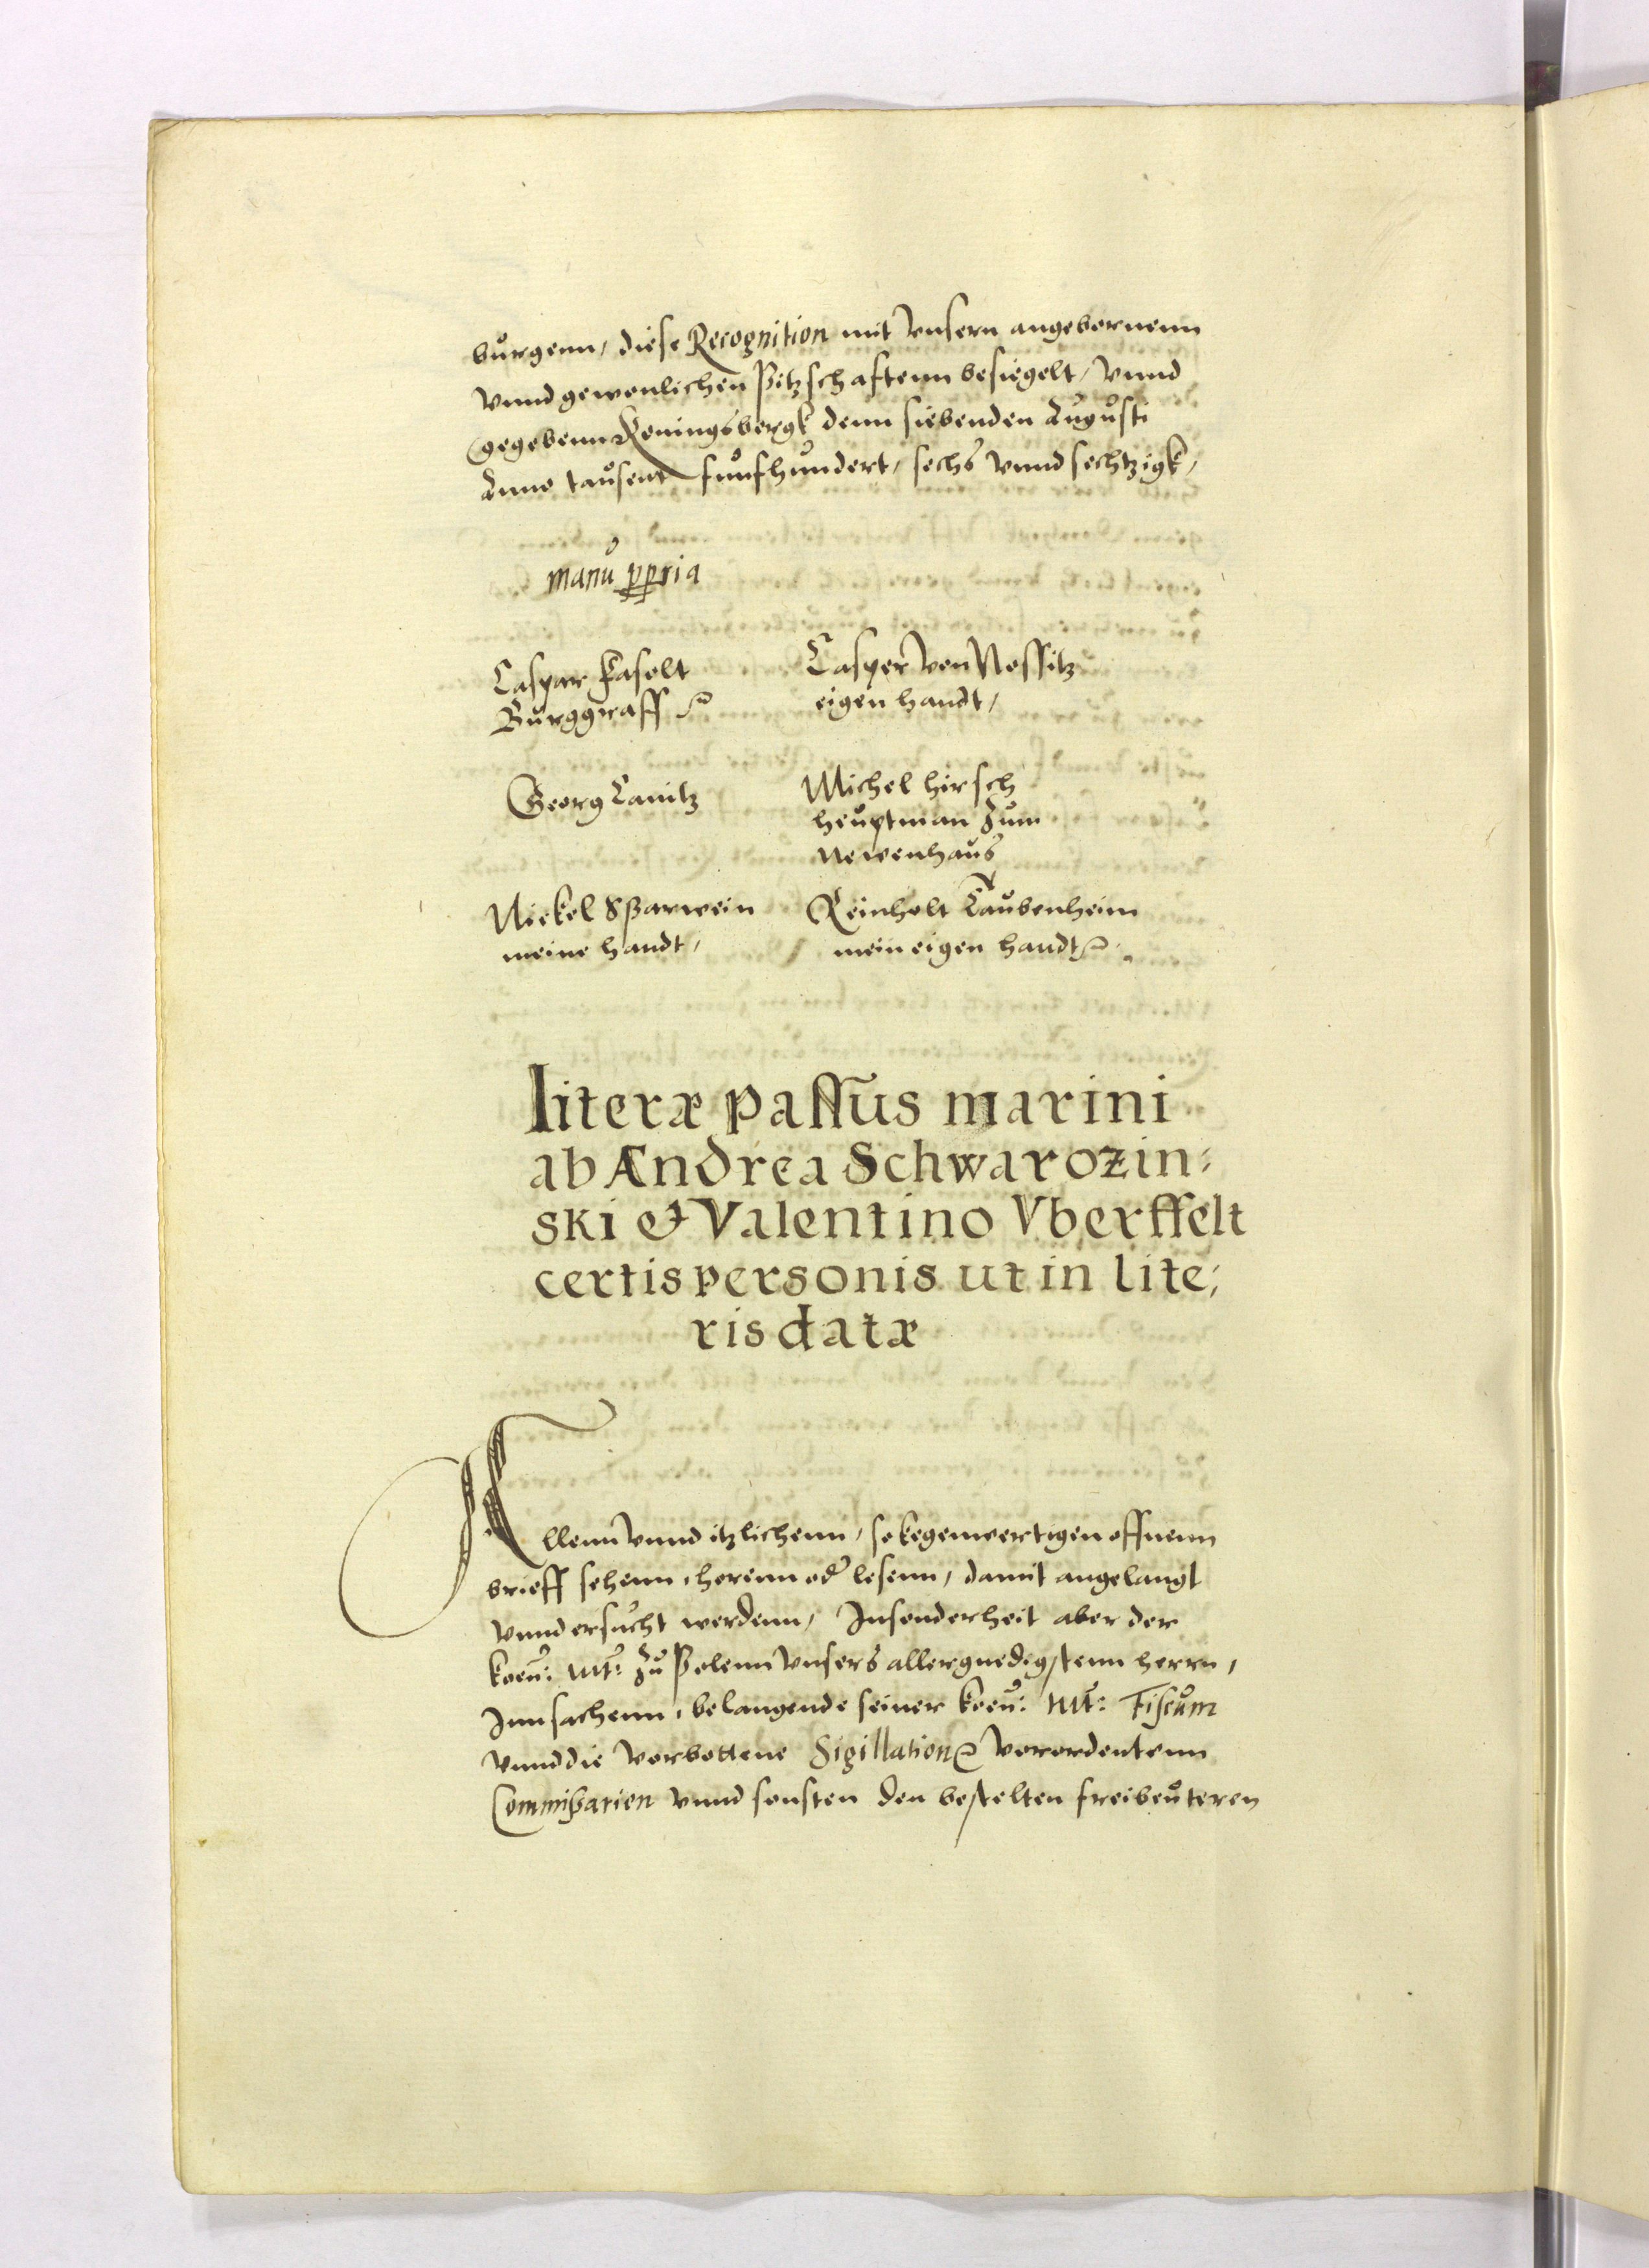 burgenn, diese Recognition mit Vnsern angebornenn
Vnnd gewonlichen Pitzschaftenn besiegelt, Vnnd
gegebenn Koningsbergk denn siebenden Augusti
Anno tausent funfhundert, sechs Vnnd sechtzigk,
manu ppria
Caspar Fasolt
Burggraff
Casper Von Nostitz
eigen handt,
Georg Canitz
Michel Hirsch
heuptman zum
Newenhaus
Nickel Sparwein
meine handt,
Reinholt Taubenheim
mein eigen handt
Literæ passus marini
ab Andrea Schwarozin:
ski & Valentino Vberffelt
certis personis ut in lite:
ris datæ
Allenn Vnnd itzlichenn, so kegenwertigen offnenn
brieff sehenn, horenn oder lesenn, damit angelangt
Vnnd ersucht werdenn, Insonderheit aber der
koen: Mt: zu Polenn Vnsers allergnedigstenn herrn,
Inn sachenn, belangende seiner koen: Mt: Fiscum
Vnnd die Verbottene Sigillation Verordentenn
Commissarien Vnnd sonsten den bestelten freibeuteren